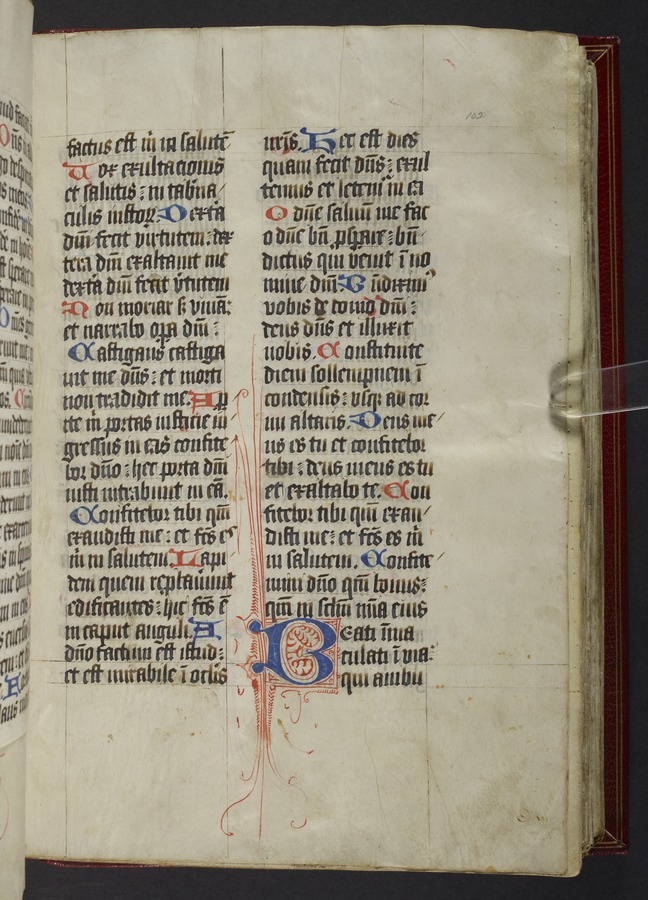 102
factus est m̄ in salutē
Vox exultacionis
et salutis : in tab̄na
culis iustoꝝ. Dext̄a
dn̄i fecit virtutem : dex
tera dn̄i exaltauit me
dext̄a dn̄i fecit v̄tutem
Non moriar s̄ viuā :
et narrabo oꝑa dn̄i :
Castigans castiga
uit me dn̄s : et morti
non tradidit me. Apꝑ
ite m̄ portas iusticie in
gressus in eas confite
bor dn̄o : hec porta dn̄i
iusti intrabunt in eā.
Confitebor tibi qm̄
exaudisti me : et fc̄s es
m̄ in salutem. Lapi
dem quem reꝓbauerunt
edificantes : hic fc̄s ē
in caput anguli. A
dn̄o factum est istud :
et est mirabile ī oc̄lis
nr̄is. Hec est dies
quam fecit dn̄s : exul
temus et letem̄ in ea
O dn̄e saluū me fac
o dn̄e bn̄ ꝓsꝑare : bn̄
dictus qui venit ī no
mine dn̄i. Bn̄diximꝰ
vobis de domo dn̄i :
deus dn̄s et illuxit
nobis. Constituite
diem sollempnem ī
condensis : vsqꝫ ad cor
nu altaris. Deus me
us es tu et confitebor
tibi : deus meus es tu
et exaltabo te. Con
fitebor tibi qm̄ exau
disti me : et fc̄s es m̄
in salutem. Confite
mini dn̄o qm̄ bonus :
qm̄ in sc̄lm mīa eius
Beati īma
culati ī via :
qui ambu